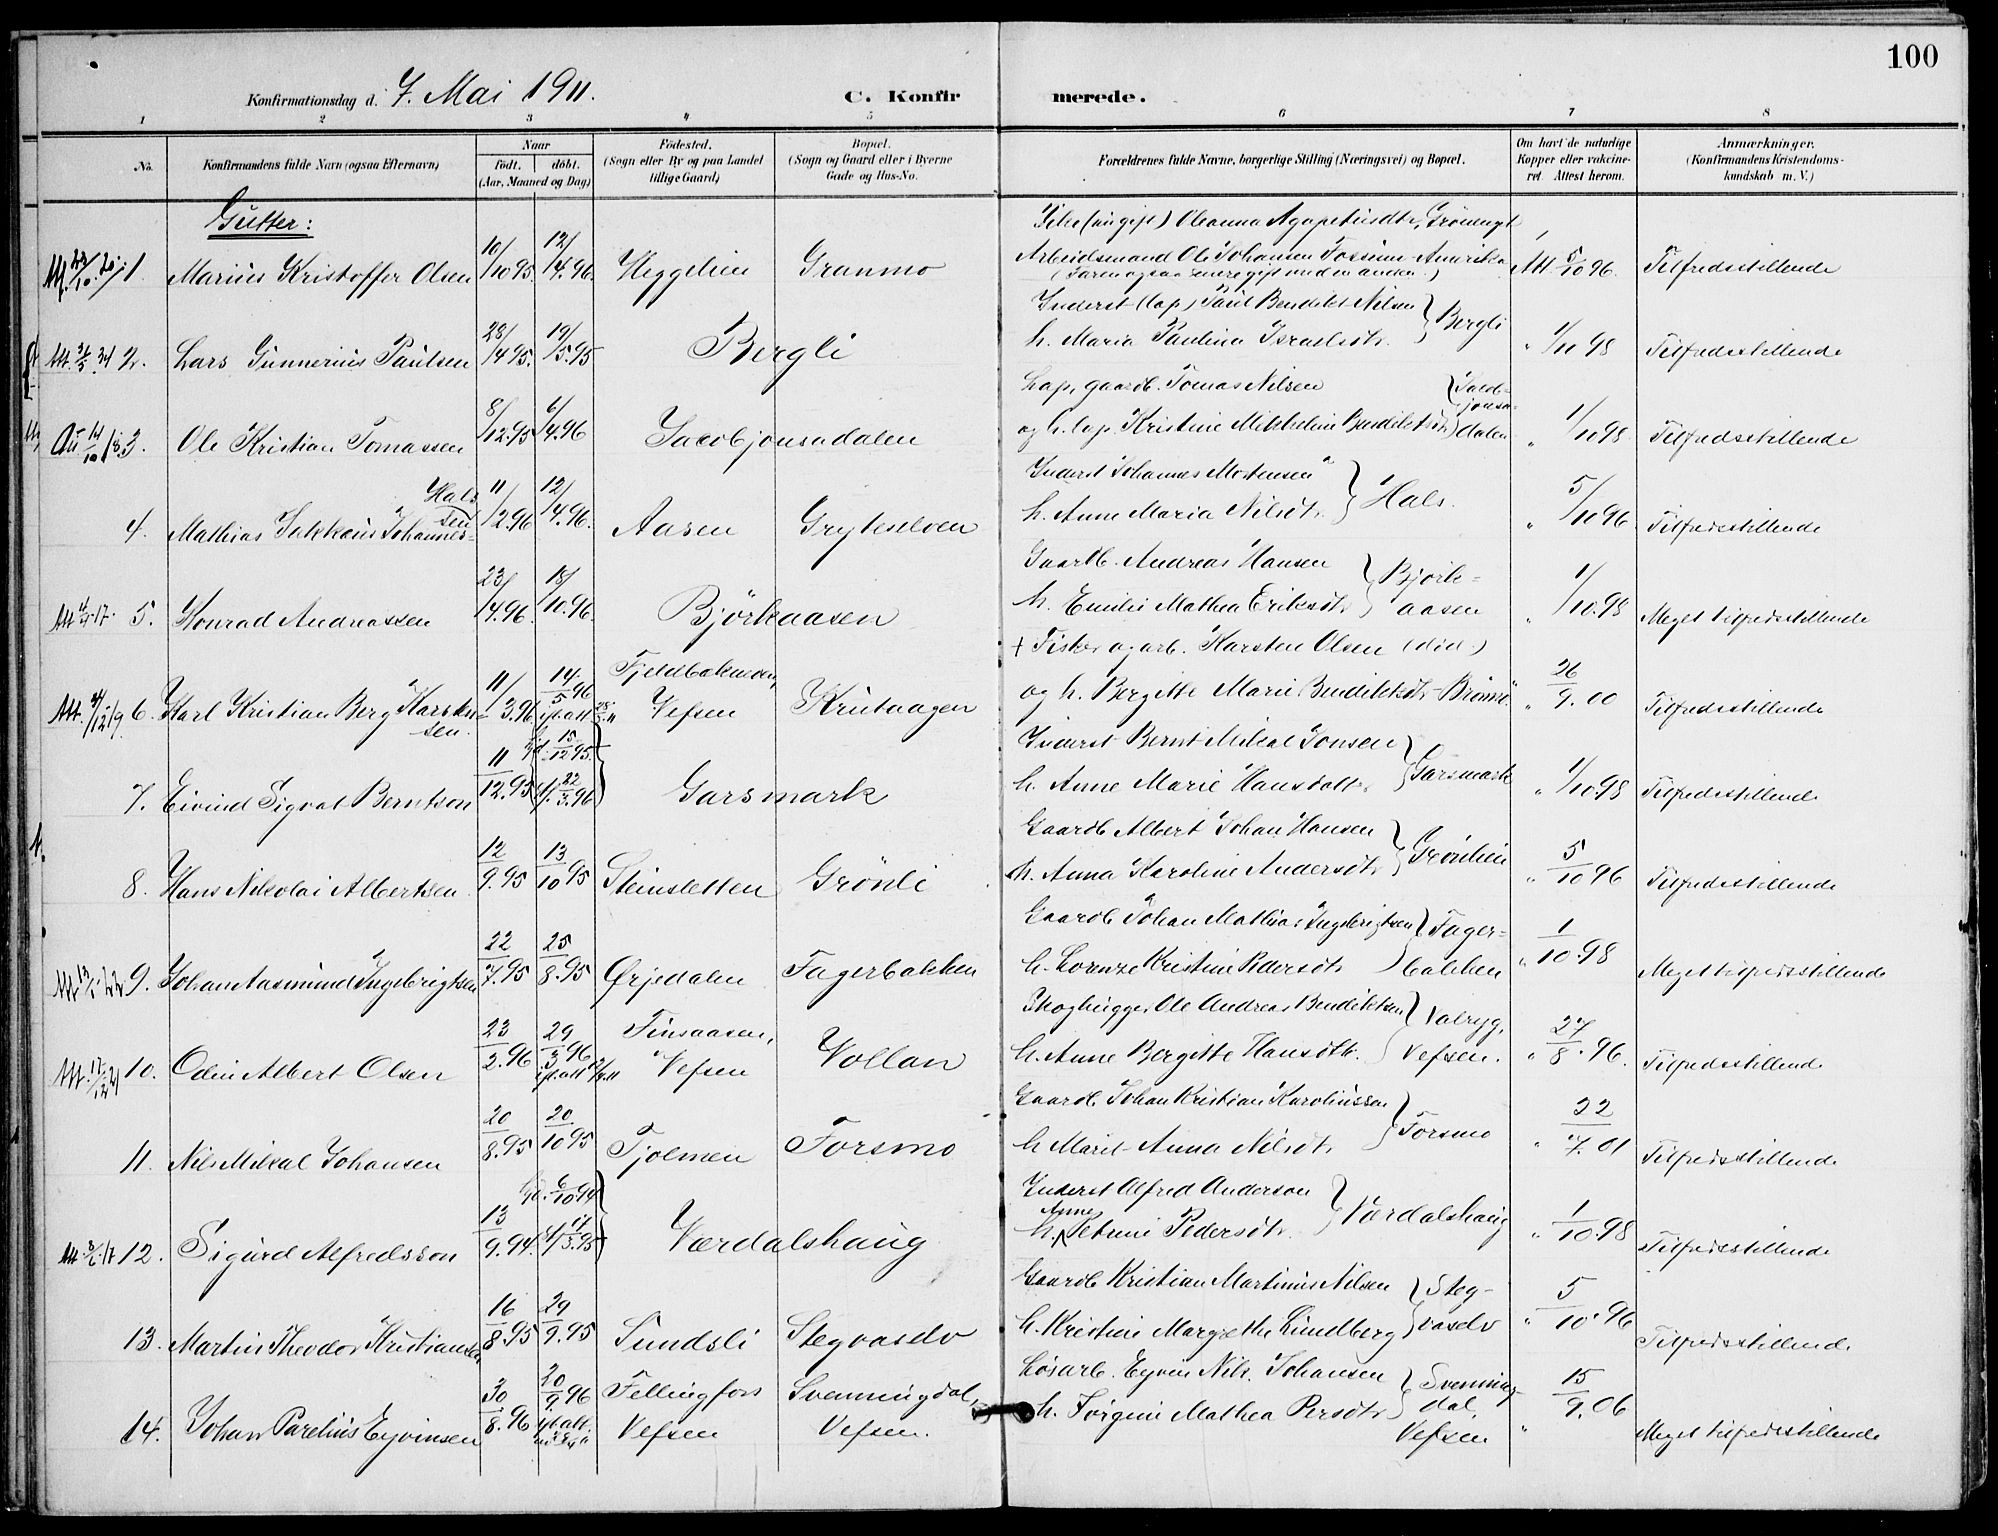 100
Konfirmationsdag d. 7. Mai 1911. C. Konfir merede.
1 2 3 4 5 6 7 8
No. Konfirmandens fulde Navn (ogsaa Efternavn) Naar födt. döbt. (Aar, Maaned og Dag) Födested. (Sogn eller By og paa Landet tillige Gaard) Bopæl. (Sogn og Gaard eller i Byerne Gade og Hus-No. Forældrenes fulde Navne, borgerlige Stilling (Næringsvei) og Bopæl. Om havt de naturlige Kopper eller vakcineret. Attest herom. Anmærkninger. (Konfirmandens Kristendomskundskab m. V.)
Gutter:
Pike (ungift) Oleanna Agapetusdtr,
1. Marius Kristoffer Olsen 10/10 95. 12/4. 96. Heggelien Granmo Arbeidsmand Ole Johansen Fossum Amerika Att 5/10 96. Tilfredsstillende
Inderst (lap) Paul Bendikt Nilsen
2. Lars Gunnerius Paulsen 28/4 95. 19/5. 95 Bergli h. Maria Paulina Israelsdtr. Bergli " 1/10 98 Tilfredsstillende
Lap, gaardb. Tomas Nilsen
3. Ole Kristian Tomassen 8/12. 95 6/4. 96 Jacobjonsadalen og h. lap. Kristine Mikkeline Bendiktsdtr dalen " 1/10 98. Tilfredsstillende
Inderst Johannes Mortensen
4. Mathias Sakkæus Johannessen Hals 11/2. 96 12/4. 96. Aasen Grytselven h. Anne Maria Nilsdtr. Hals. " 5/10 96 Tilfredsstillende
Gaardb. Andreas Hansen
5. Konrad Andreassen 23/4. 96. 18/10. 96. Björkaasen h. Emilie Mathea Eriksdtr Björkaasen " 1/10. 98 Meget tilfredsstillende
+ Fisker og arb. Karsten Olsen (död.)
6. Karl Kristian Berg Karstensen. 11/3. 96 14/5 96 ifl. att Fjeldbakmoen, Vefsen Krutaagen og h. Bergitte Marie Bendiktsdtr - Brönnö. " 26/9. 00 Tilfredsstillende
Inderst Bernt Mikal Jonsen
7. Eivind Sigvat Berntsen 11/12. 95 15/12 95. 22/3. 96 Garsmark h. Anne Marie Hansdatter Garsmark " 1/10. 98 Tilfredsstillende
Gaardb Albert Johan Hansen
8. Hans Nikolai Albertsen 12/9. 95 13/10 95 Steinsletten Grönli h. Anna Karoline Andersdtr. Grönlien " 5/10 96 Tilfredsstillende
Gaardb. Johan Mathias Ingebrigtsen
9. Johan Aasmund Ingebrigtsen 22/7. 95 25/8. 95 Ørjedalen Fagerbakken h. Lorenze Kristine Pedersdtr Fagerbakken " 1/10. 98 Meget tilfredsstillende
Skoghugger Ole Andreas Bendiktsen
10. Odin Albert Olsen 23/2. 96 29/3 96 ifl. att Finsaasen, Vefsen Vollan h. Anne Bergitte Hansdtr. Valryg, Vefsen. " 27/8. 96. Tilfredsstillende
Gaardb Johan Kristian Karoliussen
11. Nils Mikal Johansen 20/8. 95 20/10 95 Fjolmen Forsmo h Marit Anna Nilsdtr Forsmo " 22/7. 01 Tilfredsstillende
Inderst Alfred Anderson
12. Sigurd Alfredsson 13/9. 94. 6/10. 94 17/3. 95 Værdalshaug h. Anne Petrine Pedersdtr. Værdalshaug " 1/10. 98 Tilfredsstillende
Gaardb Kristian Martinus Nilsen
13. Martin Theodor Kristiansen 16/8. 95 29/9. 95 Sundsli Stegvaselv h. Kristine Margrethe Lundberg Stegvaselv " 5/10. 96 Tilfredsstillende.
Lösarb. Eyvin Nils. Johansen
14. Johan Parelius Eyvinsen 30/8. 96 20/9 96 ifl. att. Fellingfors Vefsen Svenningdal, Vefsen. h. Jörgine Mathea Persdtr Svenningdal, Vefsen " 15/9. 06 Meget tilfredsstillende